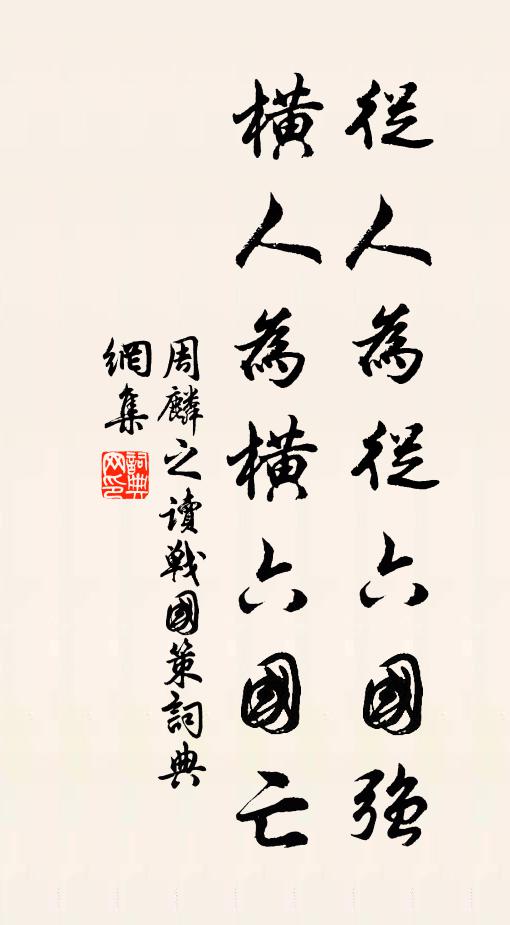 從人為從六國強
橫人為橫六國亡
周麟之讀戰國策詞典
網集
詞典
网印